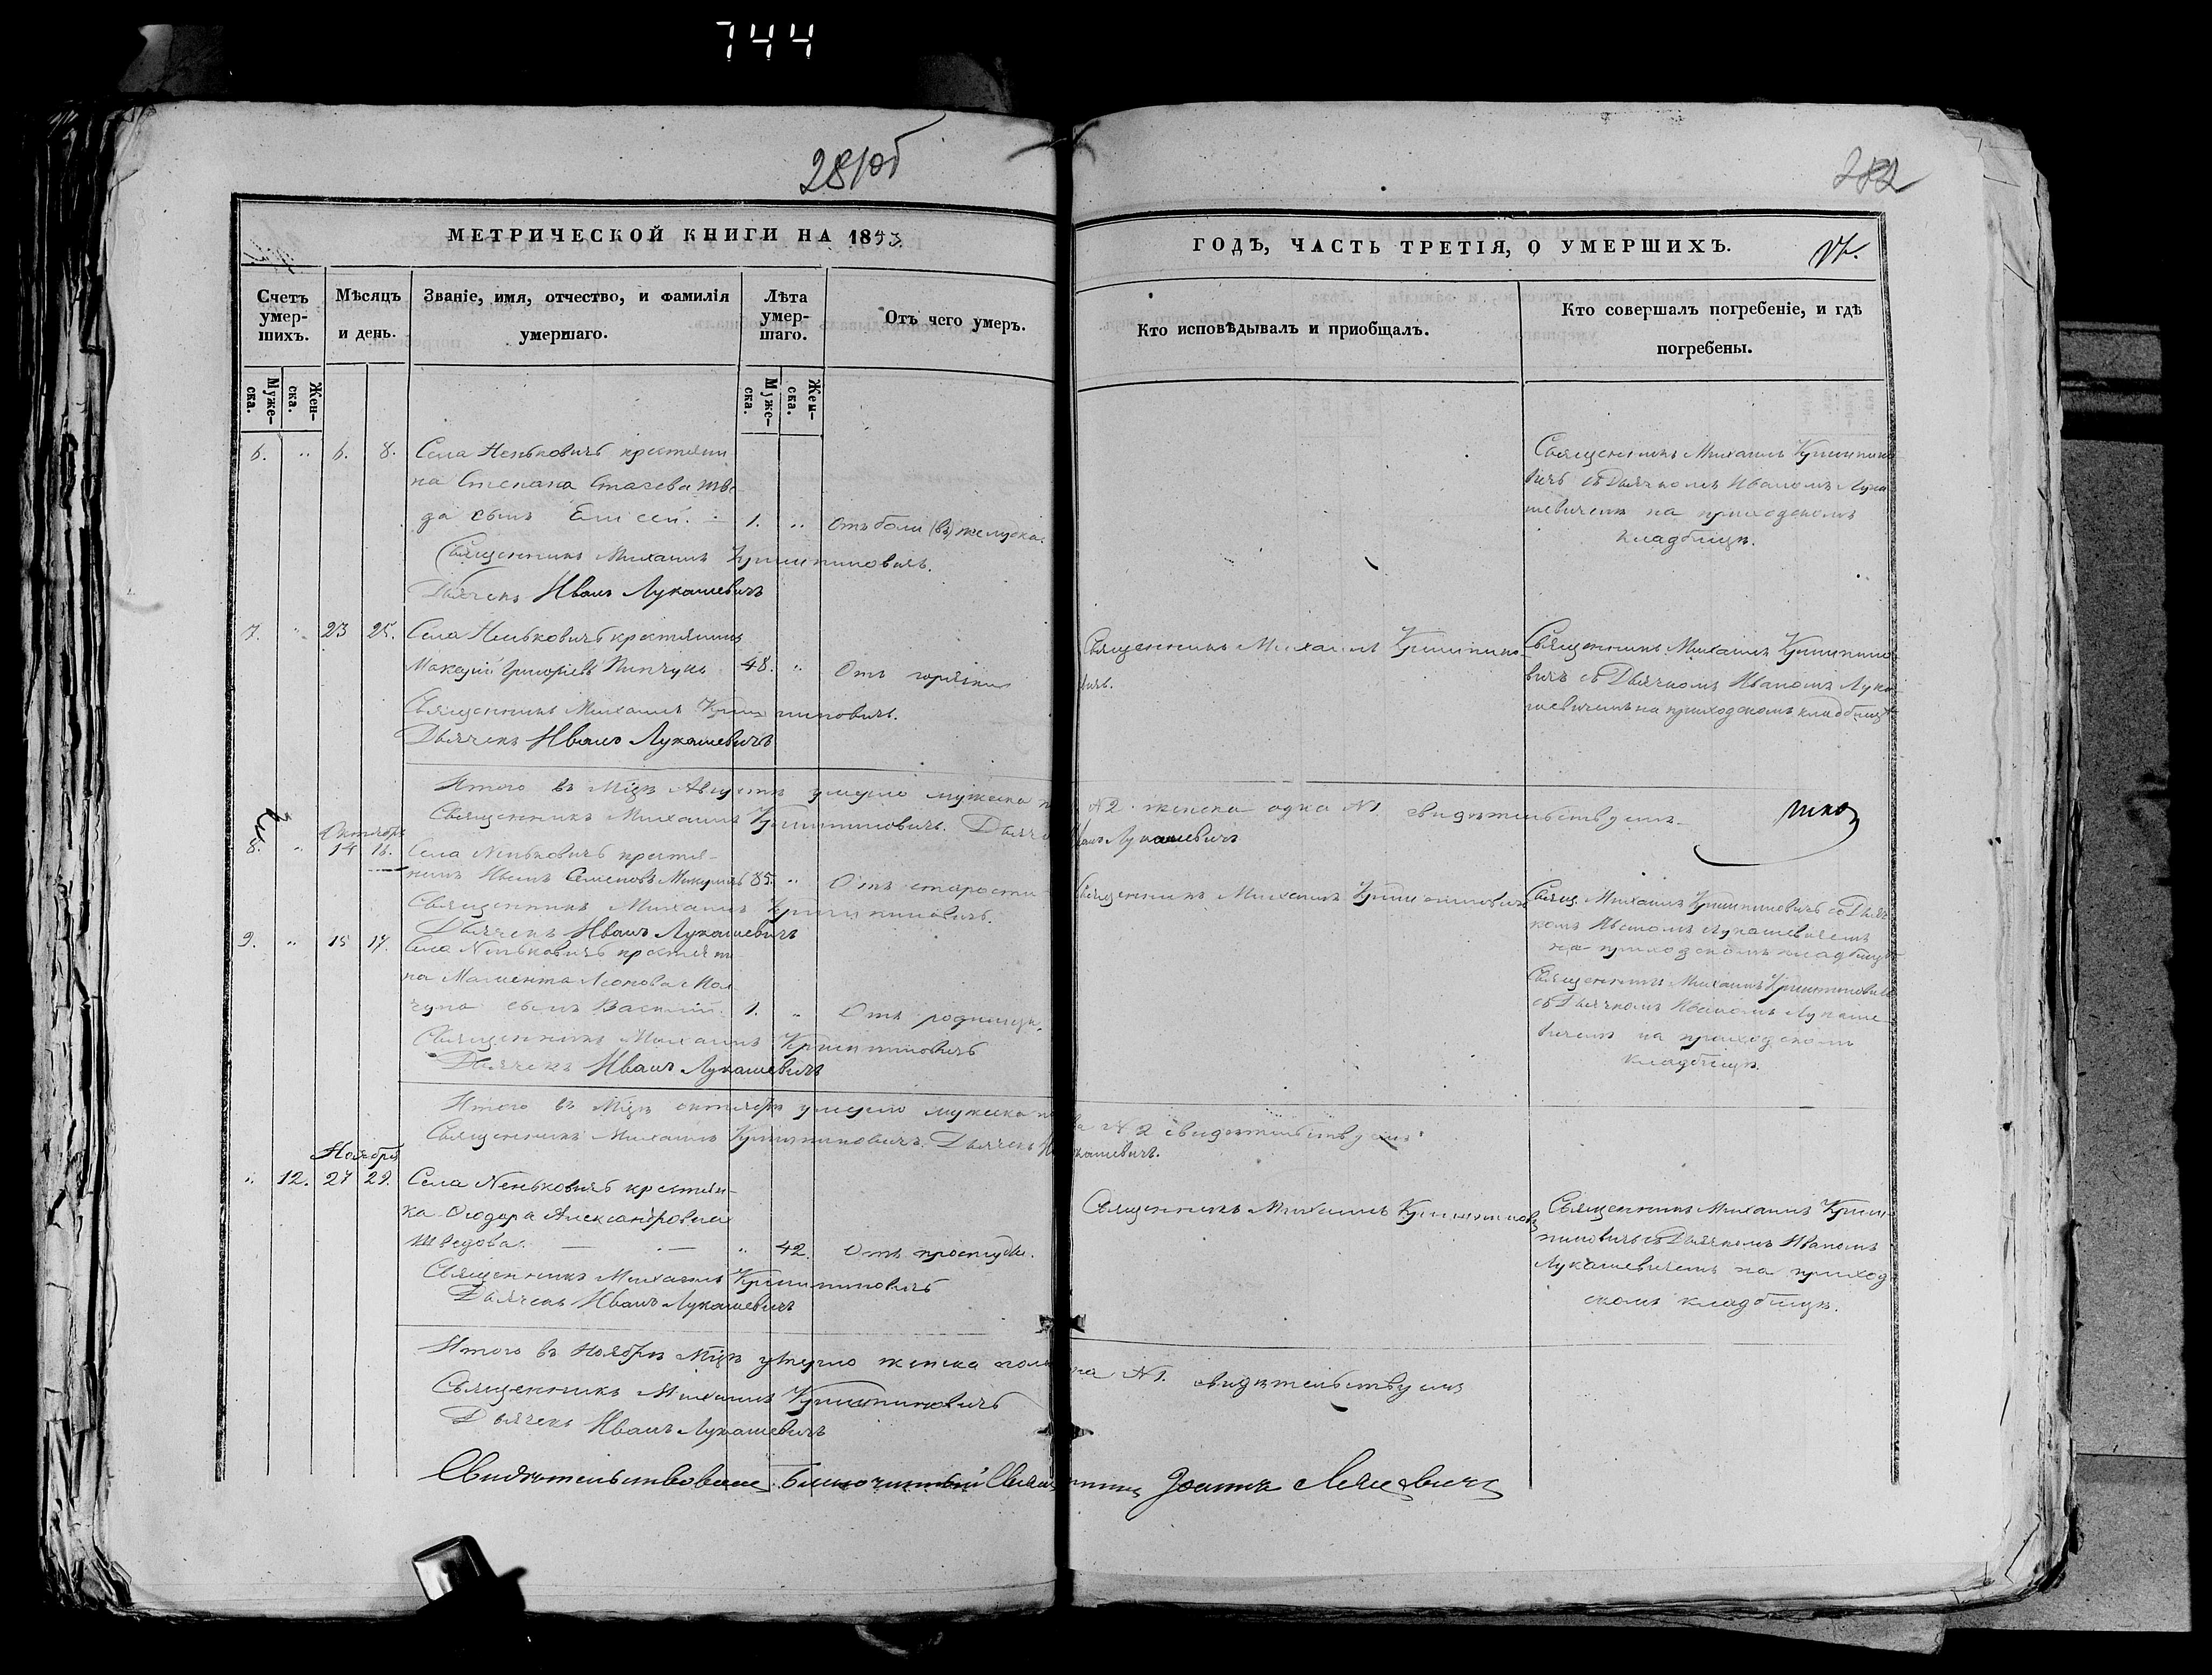 744
281об
282
МЕТРИЧЕСКОЙ КНИГИ НА 1853
ГОДЪ, ЧАСТЬ ТРЕТІЯ, О УМЕРШИХЪ.
Счетъ умер-шихъ.
Мѣсяцъ и день.
Званіе, имя, отчество, и фамилія умершаго.
Лѣта умер-шаго.
Отъ чего умеръ.
Кто исповѣдывалъ и приобщалъ.
Кто совершалъ погребеніе, и гдѣ погребены.
Муже-ска.
Жен-ска.
Муже-ска.
Жен-ска.
6. " 6. 8. Села Неньковичъ крестьяни
на Степана Стасева
да сынъ Елисей. 1. " Отъ боли (въ) желудка.
Священникъ Михаилъ Криштиновичъ.
Дьячекъ Иванъ Лукашевичъ
Священникъ Михаилъ Криштино
вичъ съ Дьячкомъ Иваномъ Лука
шевичемъ на приходскомъ
кладбищѣ.
7. " 23 25. Села Неньковичъ крестьянинъ
Григорьевъ Пинчукъ 48. " Отъ горячки
Священникъ Михаилъ Криштиновичъ.
Дьячекъ Иванъ Лукашевичъ
Священникъ Михаилъ Криштино
вичъ.
Священникъ Михаилъ Криштино
вичъ съ Дьячкомъ Иваномъ Лука
шевичемъ на приходскомъ кладбищѣ
Итого въ Мцѣ Августѣ умерло мужеска по N 2. женска одна N 1. свидѣтельствуемъ
Священникъ Михаилъ Криштиновичъ. Дьячекъ Иванъ Лукашевичъ
Октябрь
8. " 14 16. Села Неньковичъ крестья-
нинъ Иванъ Семеновъ 85. " Отъ старости
Священникъ Михаилъ Криштиновичъ.
Дьячекъ Иванъ Лукашевичъ
Священникъ Михаилъ Криштиновичъ
Свящ. Михаилъ Криштиновичъ съ Дьяч
комъ Иваномъ Лукашевичемъ
на приходскомъ кладбищѣ
9. " 15 17. Села Неньковичъ крестьяни
на Леонова
сынъ Василій. 1. " Отъ родимца.
Священникъ Михаилъ Криштиновичъ
Дьячекъ Иванъ Лукашевичъ
Священникъ Михаилъ Криштиновичъ
съ Дьячкомъ Иваномъ Лукаше
вичемъ на приходскомъ
кладбищѣ.
Итого въ Мцѣ октябрѣ умерло мужеска пола N 2 свидѣтельствуемъ
Священникъ Михаилъ Криштиновичъ. Дьячекъ Лукашевичъ.
Ноябрь
" 12. 27 29. Села Неньковичъ крестьян-
ка Ѳеодора Александровна
Шведова. " 42. Отъ простуды.
Священникъ Михаилъ Криштиновичъ
Дьячекъ Иванъ Лукашевичъ
Священникъ Михаилъ Криштинов
Священникъ Михаилъ Кришти-
новичъ съ Дьячкомъ Иваномъ
Лукашевичемъ на приход
скомъ кладбищѣ.
Итого въ Ноябрѣ Мцѣ умерло женска пола одна N 1. свидѣтельствуемъ
Священникъ Михаилъ Криштиновичъ
Дьячекъ Иванъ Лукашевичъ
Свидѣтельствовалъ Благочинный Священникъ Іоаннъ